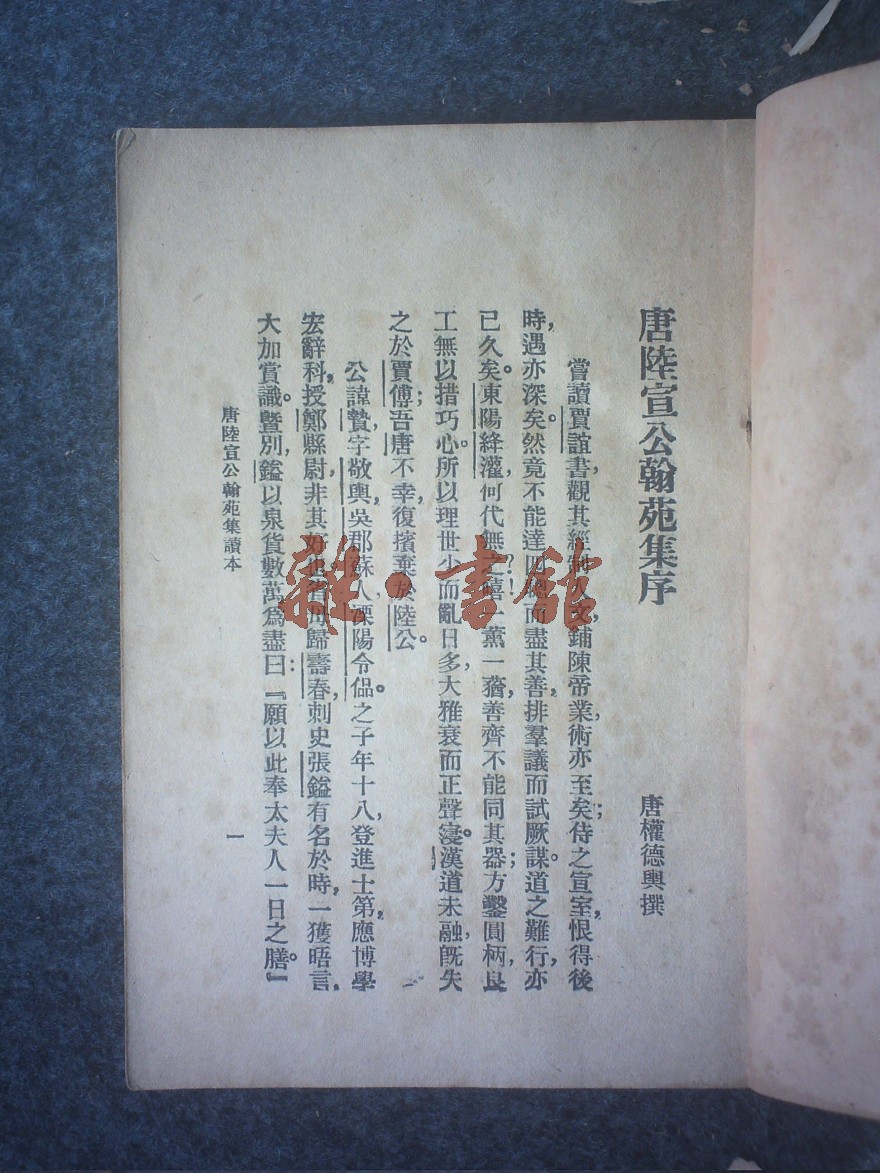 唐陸宣公翰苑集序
唐權德輿撰
嘗讀賈誼書,觀其經制人文,鋪陳帝業,術亦至矣;侍之宣室,恨得後
時,遇亦深矣。然竟不能達四聰而盡其善,排羣議而試厥謀。道之難行,亦
已久矣。東陽絳灌,何代無之?嘻!一薰一蕕,善齊不能同其器;方鑿圓柄,良
工無以措巧心。所以理世少而亂日多,大雅衰而正聲寖。漢道未融,旣失
之於賈傅;吾唐不幸,復擯棄於陸公。
公諱贄,字敬輿,吳郡蘇人,溧陽令偘。之子年十八,登進士第,應博學
宏辭科,授鄭縣尉,非其好也。省母歸壽春,刺史張鎰有名於時,一獲晤言,
大加賞識。暨別,鎰以泉貨數萬爲盡曰:『願以此奉太夫人一日之膳。』
唐陸宣公翰苑集讀本
一
雜·書館